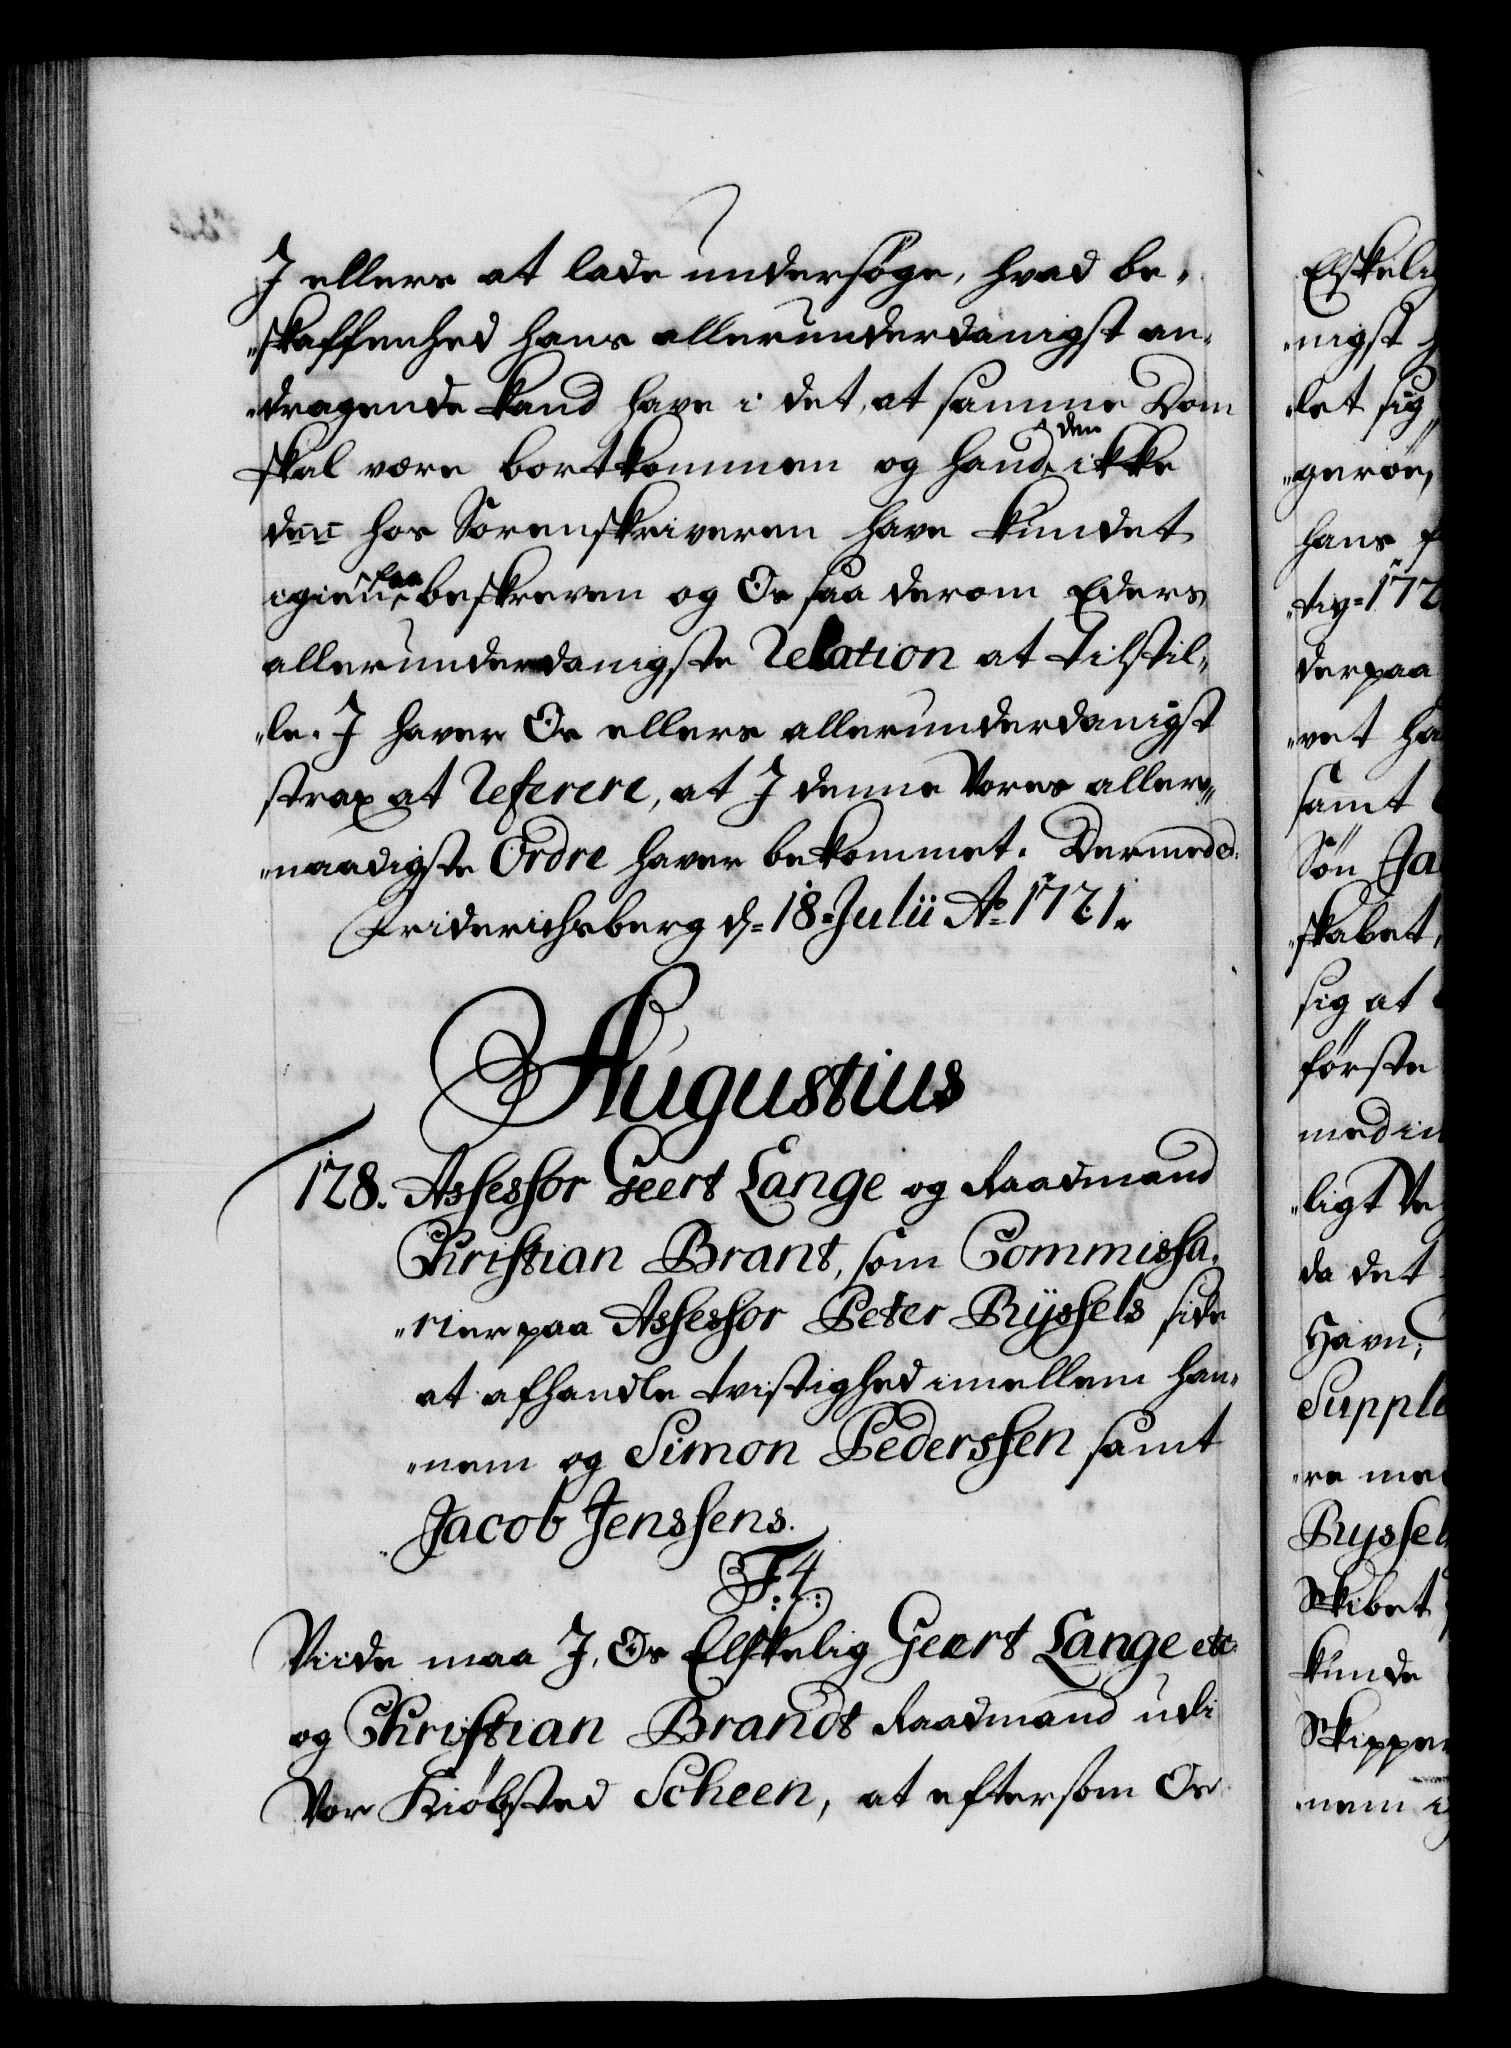 J ellers at lade undersøge, hvad be¬
„skaffenhed hans allerunderdanigst an¬
„dragende kand have i det, at samme Dom
skal være bortkommen og hand den ikke
den hos Sorenskriveren have kundet
igien faa beskreven og Os saa derom Eders
allerunderdanigste Relation at tilstil¬
„le. J haver Os ellers allerunderdanigst
strax at Referere, at J denne Vores aller¬
„naadigste Ordre haver bekommet. Dermed etc.
Friderichsberg d. 18 Julii Ao 1721.
Augustius
128. Assessor Geert Lange og Raadmand
Christian Brant, som Commissa¬
„rier paa Assessor Peter Ryssels side
at afhandle tvistighed imellem han¬
„nem og Simon Pederssen samt
Jacob Jenssens.
F: 4:
Viide maa J, Os Elskelig Geert Lange etc.
og Christian Brandt Raadmand udi
Vor Kiøbsted Scheen, at eftersom Os
Elskelig
„nigst
„let sig
„geren,
hans
„tiv 172
derpaa
„vet ha
samt
Søn Ja
„skabet,
sig at
første
med in
„ligt Ve
da det
Havn,
Supple
„re med
Ryssel
Skibet
kunde
Skipper
„nem